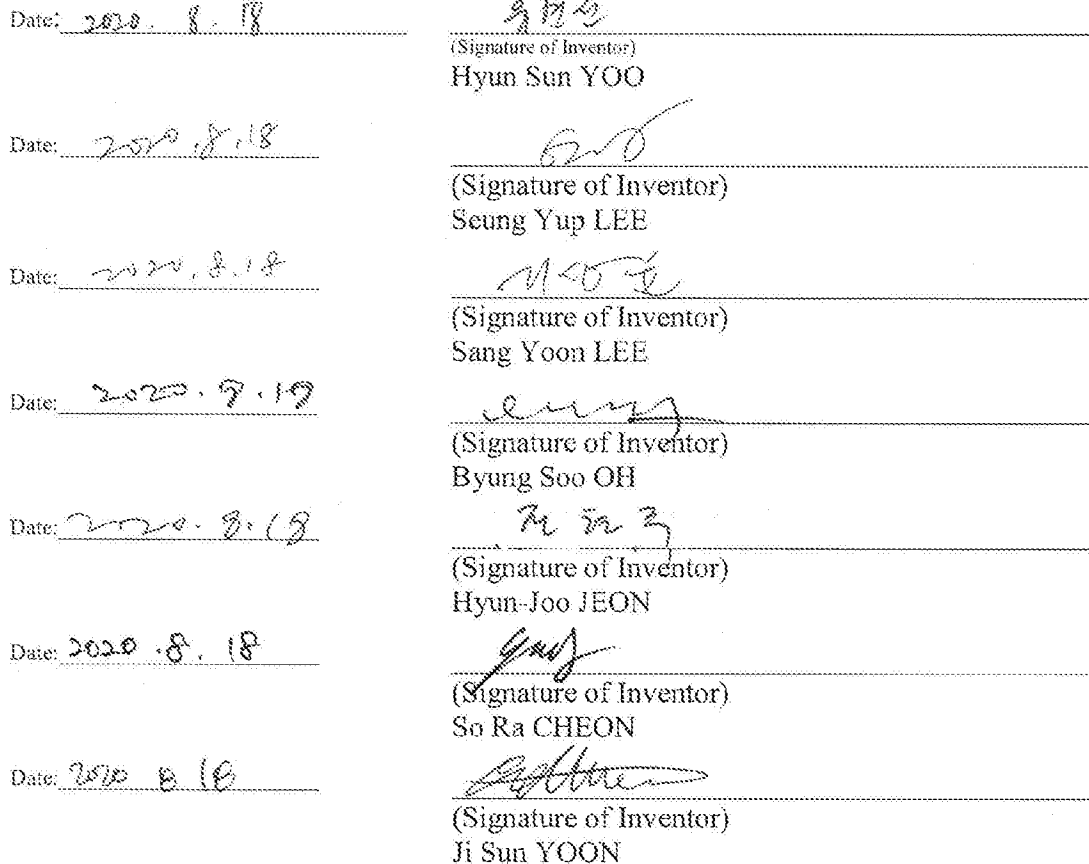 Date: 2020. 8. 18
유현선
(Signature of Inventor)
Hyun Sun YOO
Date: 2020.8.18
(Signature of Inventor)
Seung Yup LEE
Date: 2020.8.18
(Signature of Inventor)
Sang Yoon LEE
Date:
(Signature of Inventor)
Byung Soo OH
Date: 2020.8.18
전현주
(Signature of Inventor)
Hyun-Joo JEON
Date: 2020.8.18
(Signature of Inventor)
So Ra CHEON
Date: 2020 8 18
(Signature of Inventor)
Ji Sun YOON